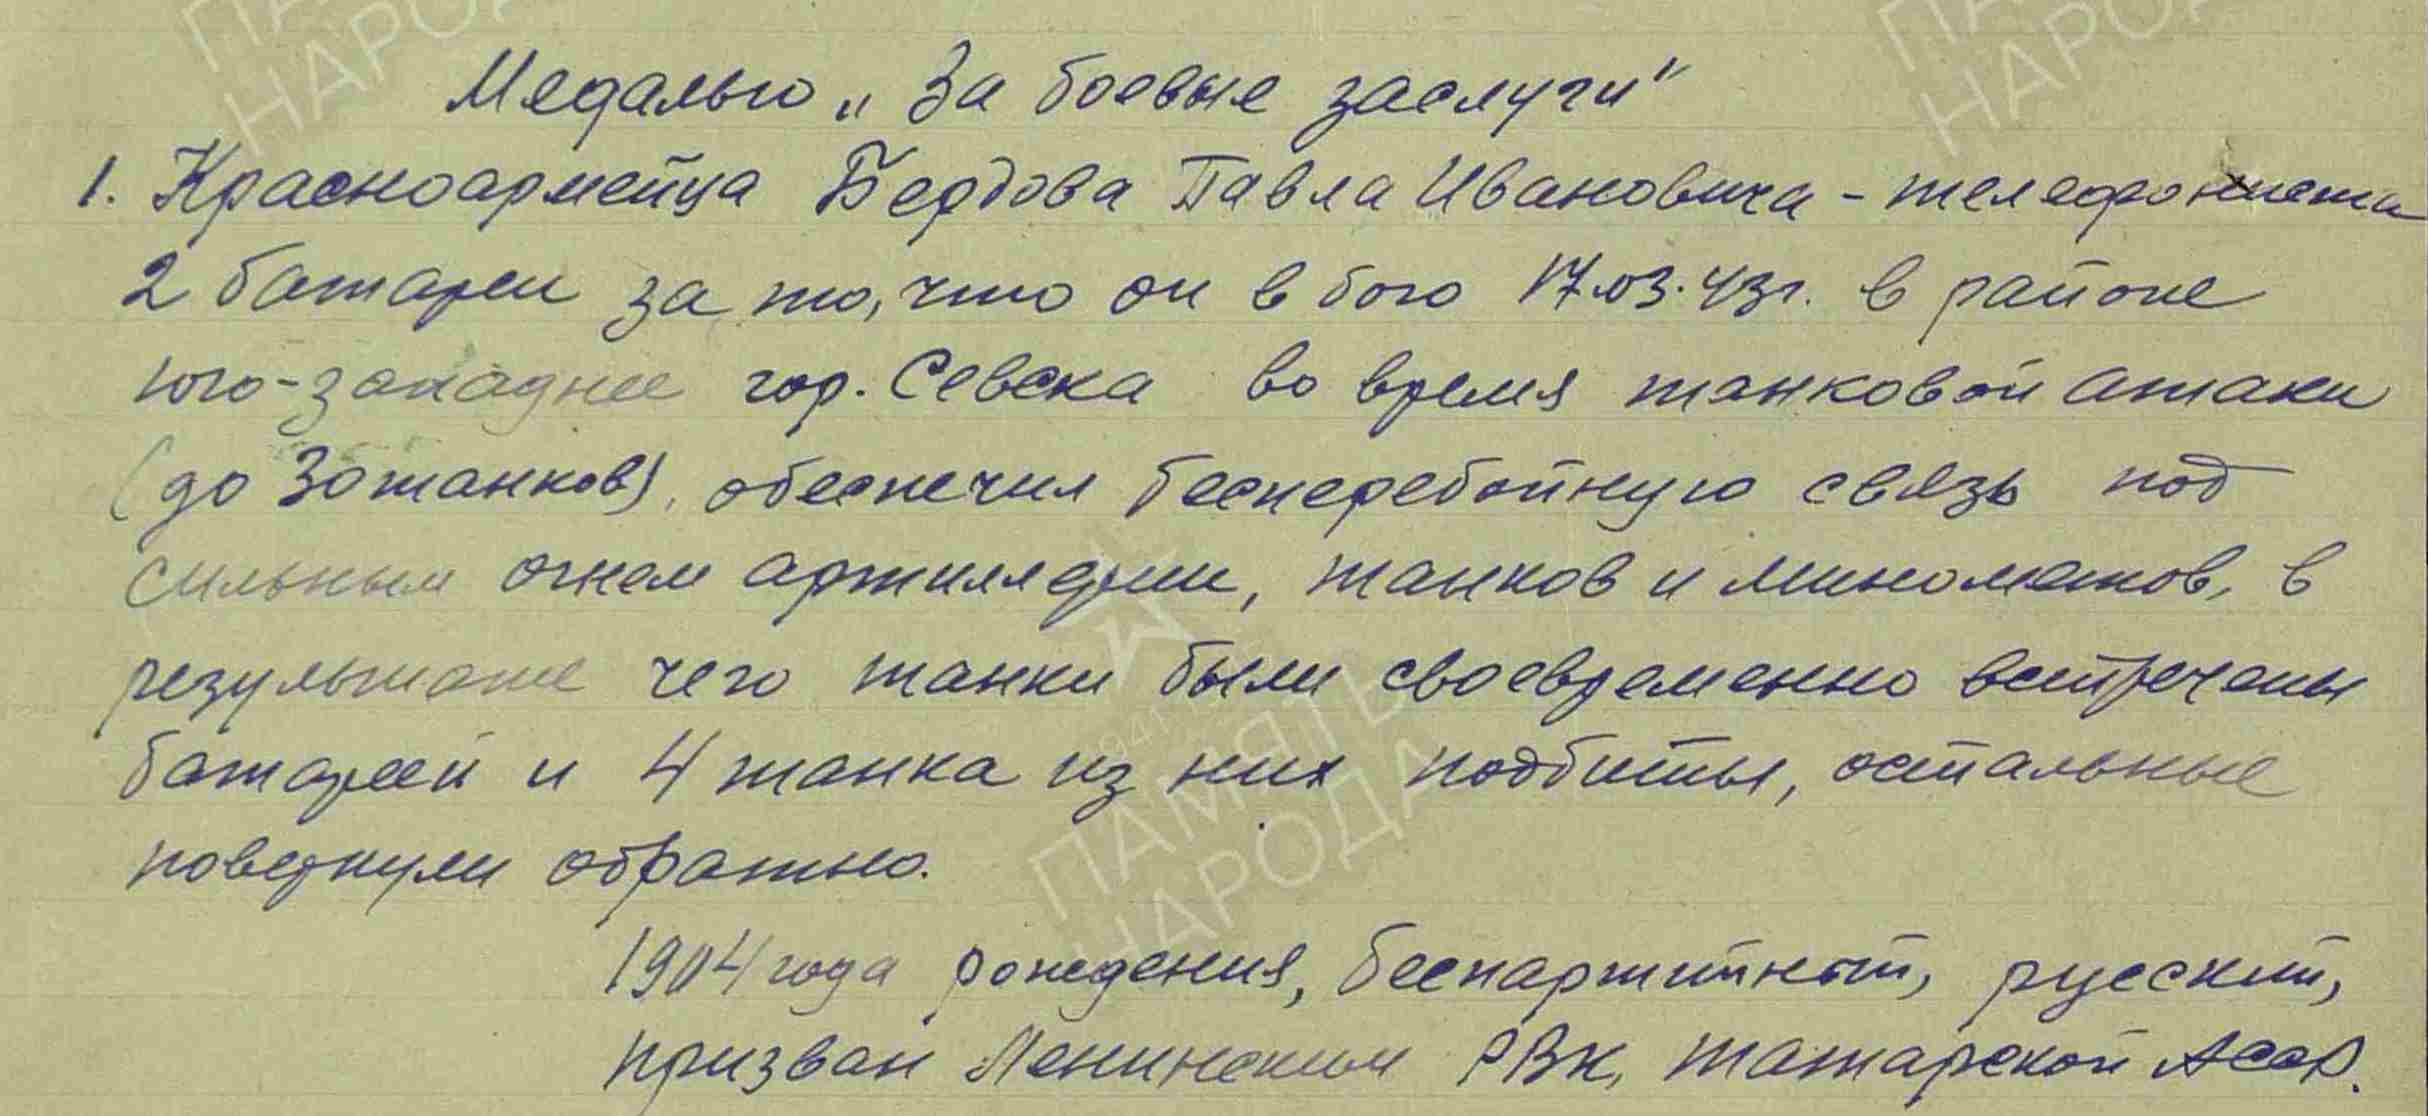 Медалью „За боевые заслуги"
1. Красноармейца Бердова Павла Ивановича - телефониста
2 батареи за то, что он в бою 17.03.43г. в районе
юго-западнее гор. Севска во время танковой атаки
(до 30 танков), обеспечил бесперебойную связь под
сильным огнем артиллерии, танков и минометов, в
результате чего танки были своевременно встречены
батареей и 4 танка из них подбиты, остальные
повернули обратно.
1904 года рождения, беспартийный, русский,
призван Ленинским РВК, Татарской АССР.
ПАМЯТЬ
НАРОДА